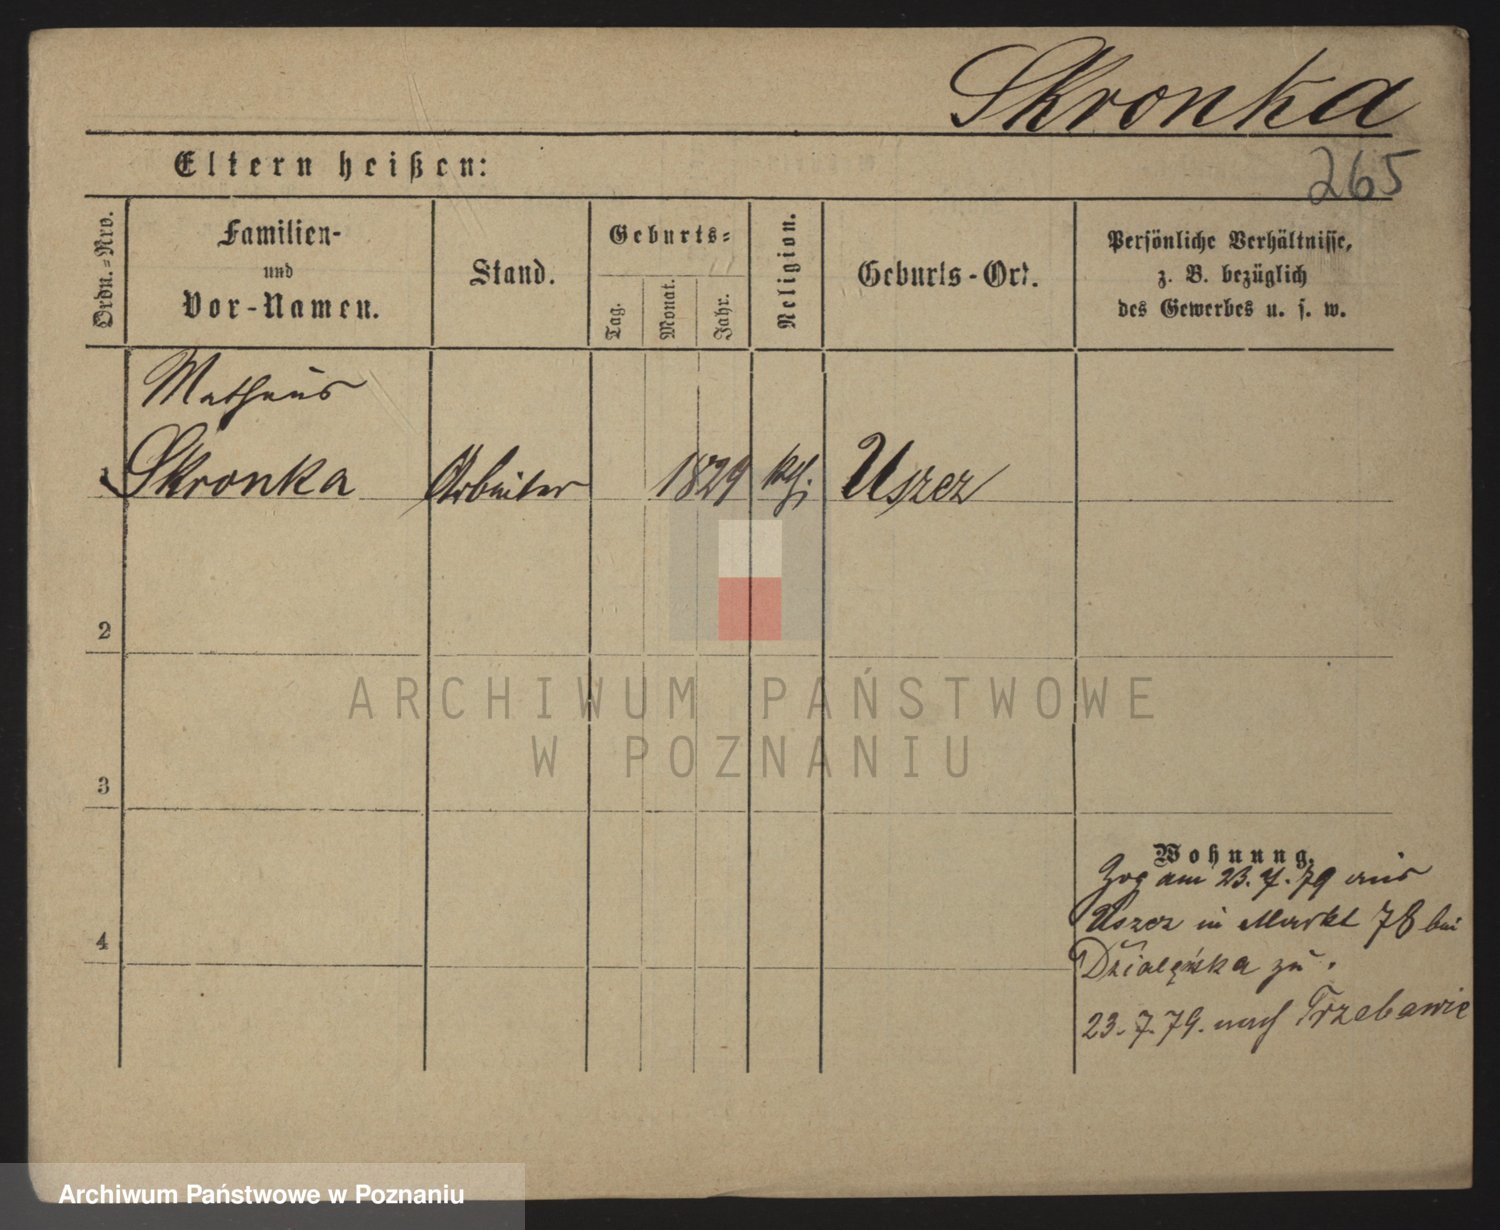 Skronka
265
Eltern heißen:
Ordn.=Nro.
Familien-
und
Vor-Namen.
Stand.
Geburts=
Tag.
Monat.
Jahr.
Religion.
Geburts-Ort.
Persönliche Verhältnisse,
z. B. bezüglich
des Gewerbes u. s. w.
Matheus
1 Skronka Arbeiter 1829 kth. Uszez
2
ARCHIWUM PAŃSTWOWE
W POZNANIU
3
Wohnung.
Zog am 23.7.79 aus
Uszez in Markt 78 bei
4
zu.
23.7.79. nach Trzebawie
Archiwum Państwowe w Poznaniu